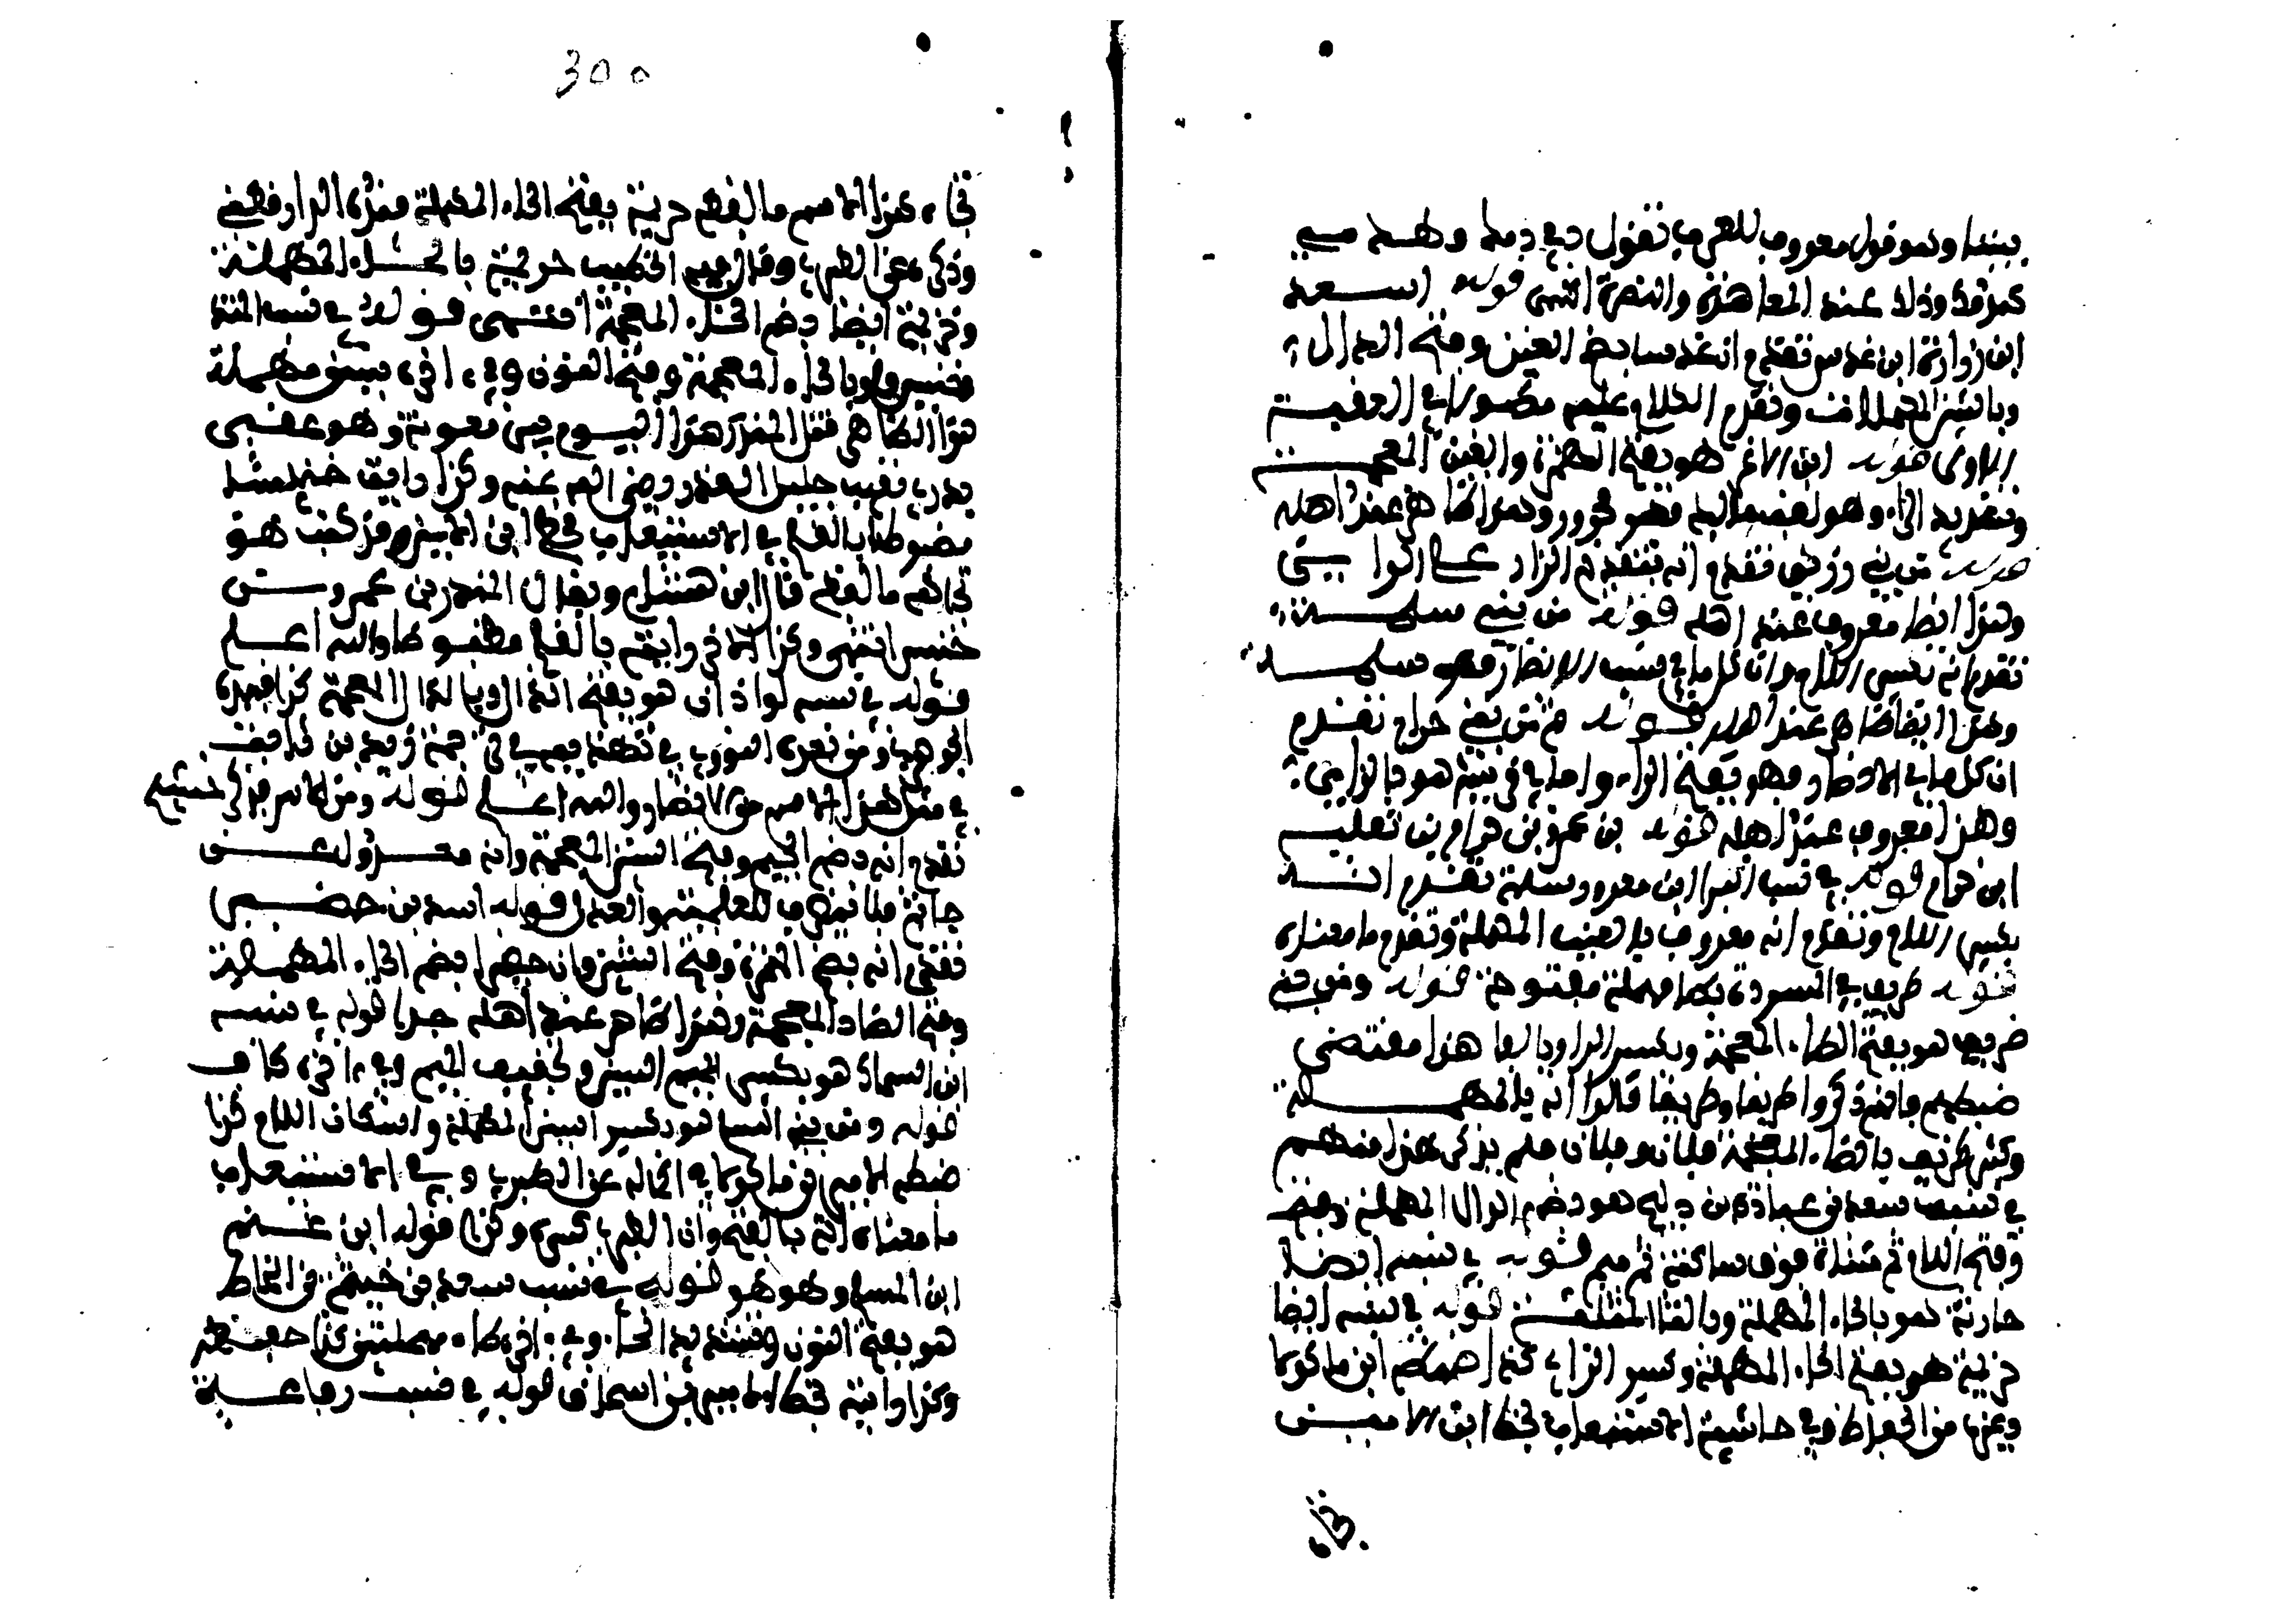 بيننا وهو قول معروف للعرب تقول دمي دمك وهدمي
هدمك وذلك عند المعاهدة والنصرة انتهى قوله اسعد
ابن زرارة ابن عدس تقدم انه عدس بضم العين وفتح الدال
وبالسين المهملات وتقدم الكلام عليه مطولا في العقبة
الاولى قوله ابن الاغر هو بفتح الهمزة والغين المعجمة
وتشديد الراء وهو فهو مجرور وهذا ظاهر عند اهله
قوله من بني زريق تقدم انه بتقديم الزاي على الراء
وهذا ايضا معروف عند اهله قوله من بني سلمة
تقدم انه بكسر اللام وان كل ما في نسب الانصار فهو سلمة
وهذا ايضا ظاهر عند اهله قوله ثم من بني حرام تقدم
ان كل ما في الانصار فهو بفتح الراء وما في قريش هو بالزاي
وهذا معروف عند اهله قوله بن عمرو بن حرام بن ثعلبة
ابن حرام قوله في نسب البراء ابن معرور وسلمة تقدم انه
بكسر اللام وتقدم انه معروف بالعين المهملة وتقدم ما معناه
قوله طريف في السرد بطاء مهملة مفتوحة قوله ومن بني
ظريف هو بفتح الظاء المعجمة وبكسر الراء وبالفاء هذا مقتضى
ضبطهم فانهم ذكروا طريفا وظريفا قالوا انه بالمهملة
وكثير ظريف بالظاء المعجمة فلان وفلان فلم يذكر هذا منهم
في نسب سعد بن عبادة بن دليم هو بضم الدال المهملة
وفتح اللام ثم مثناة فوق ساكنة ثم ميم قوله في نسبه ايضا
حارثة هو بالحاء المهملة وبالثاء المثلثة قوله في نسبه ايضا
حزيمة هو بفتح الحاء المهملة وكسر الزاي كذا ضبطه ابن ماكولا
وغيره من الحفاظ وفي حاشية الاستيعاب بخط ابن الامين
تجاه
300
تجاه هذا الاسم ما لفظه حزيمة بفتح الحاء المهملة الدارقطني
وذكره عن الطبري وقال فيه الخطيب حزيمة بالحاء المهملة
وخزيمة ايضا بضم الخاء المعجمة انتهى قوله في نسب المنذر
خنيس هو بالخاء المعجمة وفتح النون وفي اخره سين مهملة
هذا الظاهر قتل المنذر هذا يوم بير معونة وهو عقبي
بدري نقيب جليل القدر رضي الله عنه وكذا رايت خنيسا
مضبوطا بالقلم في الاستيعاب بخط ابن الامين وقد كتب هو
تجاهه ما لفظه قال ابن هشام ويقال المنذر بن عمرو بن
خنيس انتهى وكذا الاخر رايته بالقلم مضبوطا والله اعلم
قوله في نسبه لوذان هو بفتح اللام وبالذال المعجمة كذا قيده
الجوهري ومن بعده النووي في تهذيبه في ترجمة زيد بن ثابت
في مثل هذا الاسم من الانصار والله اعلم قوله ومن الاوس فذكر خيثمة
تقدم انه بضم الجيم وفتح الشين المعجمة وانه معدول عن
جاثم فلا ينصرف للعلمية والعدل قوله اسيد بن حضير
تقدم انه بضم الهمزة وفتح السين وان حضيرا بضم الحاء المهملة
وفتح الضاد المعجمة وهذا ظاهر عند اهله جدا قوله في نسبه
ابن السماك هو بكسر السين وتخفيف الميم وفي اخره كاف
قوله ومن بني السلم هو بكسر السين المهملة واسكان اللام كذا
ضبطه الامير ابن ماكولا في اكماله عن الطبري وفي الاستيعاب
ما معناه انه بالفتح وان الطبري كسره وكذا قوله ابن غنم
ابن السلم وهو هو قوله في نسب سعد بن خيثمة بن النحاط
هو بفتح النون وتشديد الحاء وفي اخره طاء مهملتين كذا حفظته
وكذا رايته بخط الامير بن اسحاق قوله في نسب رفاعة